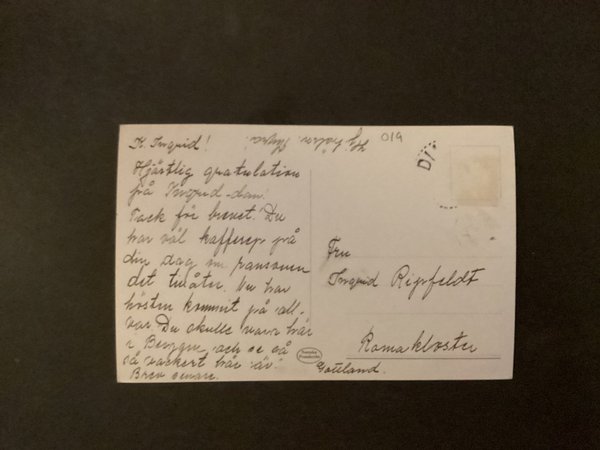 K. Ingrid!
Hjärtlig gratulation
på Ingrid-dan!
Tack för brevet! Du
har väl kafferep på
din dag om ransonen
det tillåter. Nu har
hösten kommit på all-
var. Du skulle vara här
i Bergen och se så
så vackert här är!
Brev senare.
Hj. hälsn.
019
DI
Fru
Ingrid Ripfeldt
Romakloster
Gottland.
Svenska